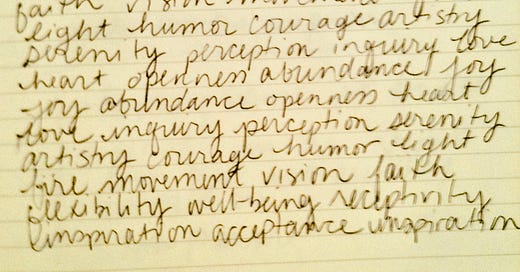 faith vision movement
light humor courage artistry
serenity perception inquiry love
heart openness abundance joy
joy abundance openness heart
love inquiry perception serenity
artistry courage humor light
fire movement vision faith
flexibility well-being receptivity
inspiration acceptance inspiration